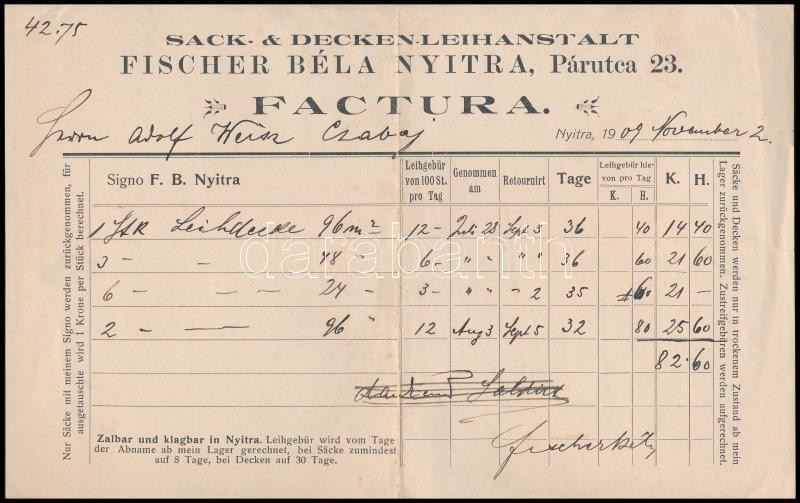 42.75
SACK- & DECKEN-LEIHANSTALT
FISCHER BÉLA NYITRA, Párutca 23.
FACTURA.
Herrn Adolf Weisz Czabaj
Nyitra, 1909 November 2.
Signo F. B. Nyitra Leihgebür von 100 St. pro Tag Genommen am Retournirt Tage Leihgebür hievon pro Tag K. H. K. H.
1 Leihdecke 96 m² 12 – Juli 28 Sept 3 36 40 14 40
3 – – 48 " 6 – " " " " 36 60 21 60
6 – — 24 " 3 – " " " 2 35 60 21 –
2 – — 96 " 12 Aug 3 Sept 5 32 80 25 60
82.60
Saldirt
Fischer Béla
Zalbar und klagbar in Nyitra. Leihgebür wird vom Tage
der Abname ab mein Lager gerechnet, bei Säcke zumindest
auf 8 Tage, bei Decken auf 30 Tage.
Nur Säcke mit meinem Signo werden zurückgenommen, für
ausgetauschte wird 1 Krone per Stück berechnet.
Säcke und Decken werden nur in trockenem Zustand ab mein
Lager zurückgenommen. Zustreifgebüren werden aufgerechnet.
darabanth